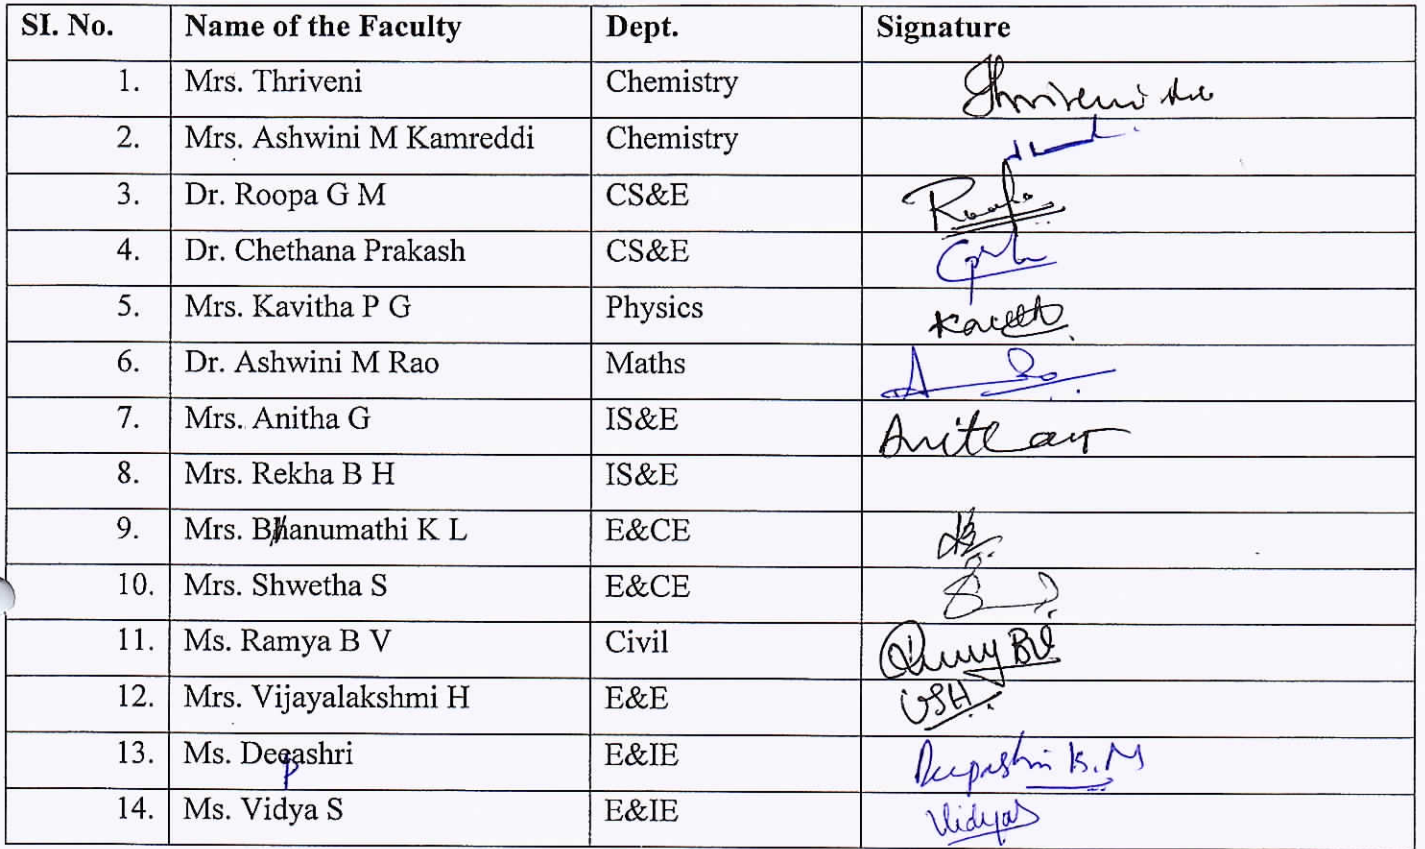 SI. No. Name of the Faculty Dept. Signature
1. Mrs. Thriveni Chemistry Thriveni
2. Mrs. Ashwini M Kamreddi Chemistry
3. Dr. Roopa G M CS&E Roopa
4. Dr. Chethana Prakash CS&E
5. Mrs. Kavitha P G Physics
6. Dr. Ashwini M Rao Maths
7. Mrs. Anitha G IS&E
8. Mrs. Rekha B H IS&E
9. Mrs. Bhanumathi K L E&CE
10. Mrs. Shwetha S E&CE
11. Ms. Ramya B V Civil
12. Mrs. Vijayalakshmi H E&E
13. Ms. Deepashri E&IE Deepashri K.M
14. Ms. Vidya S E&IE VidyaS